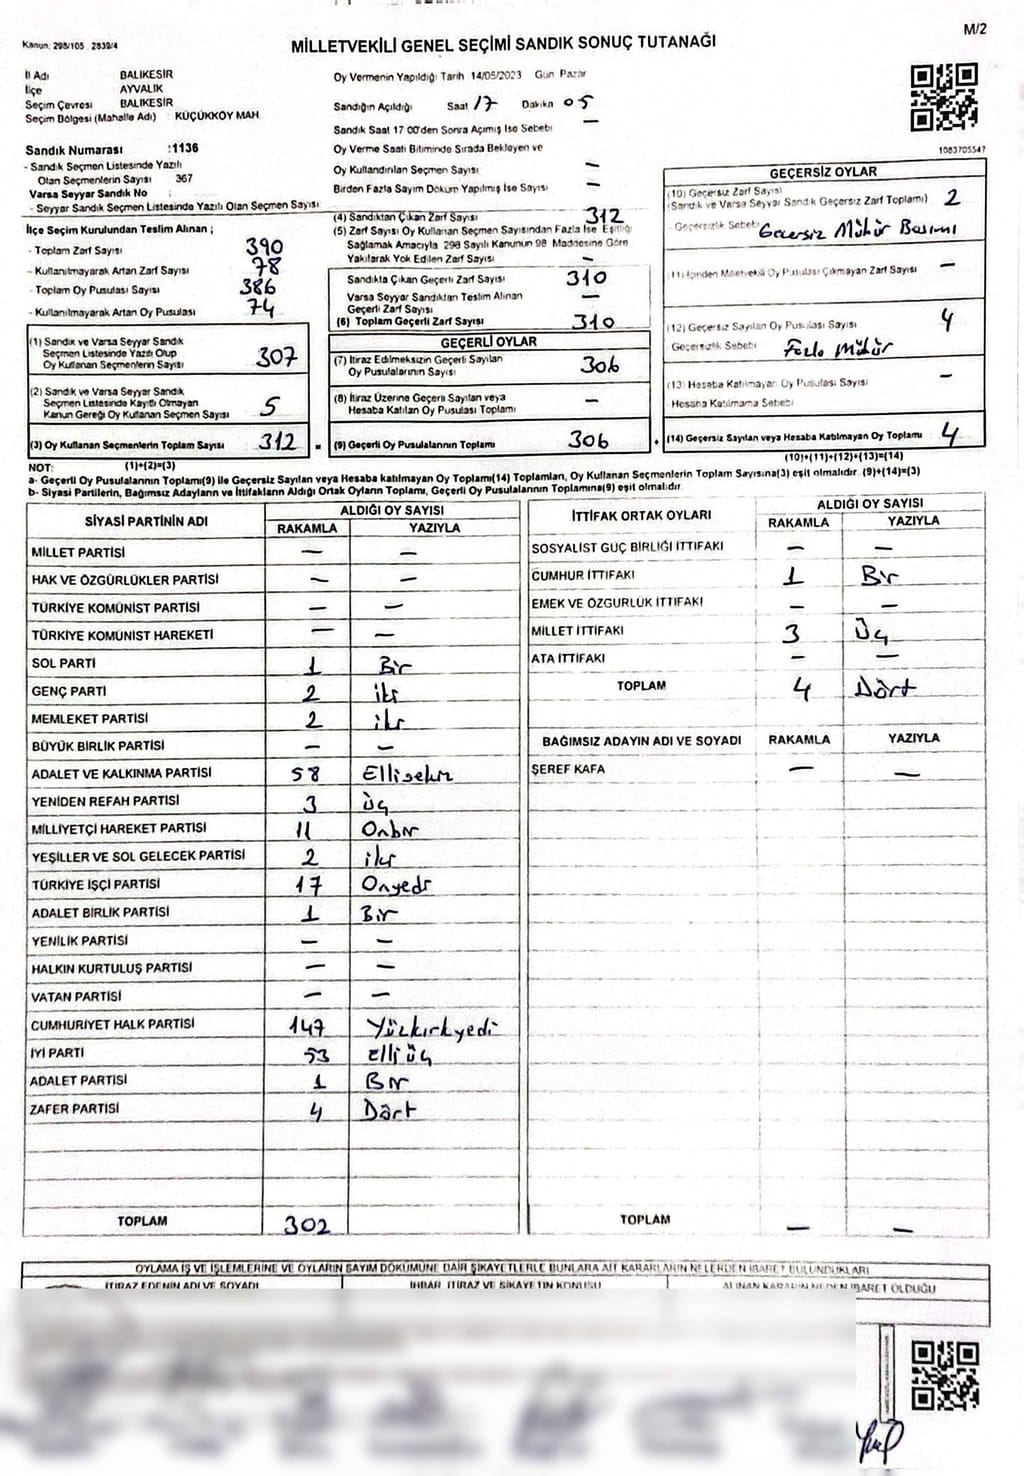 M/2
Kanun: 298/105 2839/4
MİLLETVEKİLİ GENEL SEÇİMİ SANDIK SONUÇ TUTANAĞI
İl Adı BALIKESİR
İlçe AYVALIK
Seçim Çevresi BALIKESİR
Seçim Bölgesi (Mahalle Adı) : KÜÇÜKKÖY MAH
Sandık Numarası :1136
- Sandık Seçmen Listesinde Yazılı
Olan Seçmenlerin Sayısı 367
Varsa Seyyar Sandık No :
- Seyyar Sandık Seçmen Listesinde Yazılı Olan Seçmen Sayısı
İlçe Seçim Kurulundan Teslim Alınan ;
- Toplam Zarf Sayısı 390
- Kullanılmayarak Artan Zarf Sayısı 78
- Toplam Oy Pusulası Sayısı 386
- Kullanılmayarak Artan Oy Pusulası 74
(1) Sandık ve Varsa Seyyar Sandık
Seçmen Listesinde Yazılı Olup
Oy Kullanan Seçmenlerin Sayısı 307
(2) Sandık ve Varsa Seyyar Sandık
Seçmen Listesinde Kayıtlı Olmayan
Kanun Gereği Oy Kullanan Seçmen Sayısı 5
(3) Oy Kullanan Seçmenlerin Toplam Sayısı 312 =
Oy Vermenin Yapıldığı Tarih 14/05/2023 Gün Pazar
Sandığın Açıldığı Saat 17 Dakika 05
Sandık Saat 17 00'den Sonra Açılmış İse Sebebi —
Oy Verme Saati Bitiminde Sırada Bekleyen ve
Oy Kullandırılan Seçmen Sayısı —
Birden Fazla Sayım Döküm Yapılmış İse Sayısı —
(4) Sandıktan Çıkan Zarf Sayısı 312
(5) Zarf Sayısı Oy Kullanan Seçmen Sayısından Fazla İse Eşitliği
Sağlamak Amacıyla 298 Sayılı Kanunun 98 Maddesine Göre
Yakılarak Yok Edilen Zarf Sayısı —
Sandıkta Çıkan Geçerli Zarf Sayısı 310
Varsa Seyyar Sandıktan Teslim Alınan
Geçerli Zarf Sayısı —
(6) Toplam Geçerli Zarf Sayısı 310
GEÇERLİ OYLAR
(7) İtiraz Edilmeksizin Geçerli Sayılan
Oy Pusulalarının Sayısı 306
(8) İtiraz Üzerine Geçerli Sayılan veya
Hesaba Katılan Oy Pusulası Toplamı —
(9) Geçerli Oy Pusulalarının Toplamı 306 +
1083705547
GEÇERSİZ OYLAR
(10) Geçersiz Zarf Sayısı
(Sandık ve Varsa Seyyar Sandık Geçersiz Zarf Toplamı) 2
- Geçersizlik Sebebi Geçersiz Mühür Basımı
(11) İçinden Milletvekili Oy Pusulası Çıkmayan Zarf Sayısı —
(12) Geçersiz Sayılan Oy Pusulası Sayısı 4
Geçersizlik Sebebi Fazla Mühür
(13) Hesaba Katılmayan Oy Pusulası Sayısı —
Hesaba Katılmama Sebebi
(14) Geçersiz Sayılan veya Hesaba Katılmayan Oy Toplamı 4
NOT: (1)+(2)=(3) (10)+(11)+(12)+(13)=(14)
a- Geçerli Oy Pusulalarının Toplamı(9) ile Geçersiz Sayılan veya Hesaba katılmayan Oy Toplamı(14) Toplamları, Oy Kullanan Seçmenlerin Toplam Sayısına(3) eşit olmalıdır (9)+(14)=(3)
b- Siyasi Partilerin, Bağımsız Adayların ve İttifakların Aldığı Ortak Oyların Toplamı, Geçerli Oy Pusulalarının Toplamına(9) eşit olmalıdır
SİYASİ PARTİNİN ADI ALDIĞI OY SAYISI
RAKAMLA YAZIYLA
MİLLET PARTİSİ — —
HAK VE ÖZGÜRLÜKLER PARTİSİ — —
TÜRKİYE KOMÜNİST PARTİSİ — —
TÜRKİYE KOMÜNİST HAREKETİ — —
SOL PARTİ 1 Bir
GENÇ PARTİ 2 iki
MEMLEKET PARTİSİ 2 iki
BÜYÜK BİRLİK PARTİSİ — —
ADALET VE KALKINMA PARTİSİ 58 Ellisekiz
YENİDEN REFAH PARTİSİ 3 Üç
MİLLİYETÇİ HAREKET PARTİSİ 11 Onbir
YEŞİLLER VE SOL GELECEK PARTİSİ 2 iki
TÜRKİYE İŞÇİ PARTİSİ 17 Onyedi
ADALET BİRLİK PARTİSİ 1 Bir
YENİLİK PARTİSİ — —
HALKIN KURTULUŞ PARTİSİ — —
VATAN PARTİSİ — —
CUMHURİYET HALK PARTİSİ 147 Yüzkırkyedi
İYİ PARTİ 53 Elli üç
ADALET PARTİSİ 1 Bir
ZAFER PARTİSİ 4 Dört
TOPLAM 302
İTTİFAK ORTAK OYLARI ALDIĞI OY SAYISI
RAKAMLA YAZIYLA
SOSYALİST GÜÇ BİRLİĞİ İTTİFAKI — —
CUMHUR İTTİFAKI 1 Bir
EMEK VE ÖZGÜRLÜK İTTİFAKI — —
MİLLET İTTİFAKI 3 Üç
ATA İTTİFAKI — —
TOPLAM 4 Dört
BAĞIMSIZ ADAYIN ADI VE SOYADI RAKAMLA YAZIYLA
ŞEREF KAFA — —
TOPLAM — —
OYLAMA İŞ VE İŞLEMLERİNE VE OYLARIN SAYIM DÖKÜMÜNE DAİR ŞİKAYETLERLE BUNLARA AİT KARARLARIN NELERDEN İBARET BULUNDUKLARI
İTİRAZ EDENİN ADI VE SOYADI İHBAR İTİRAZ VE ŞİKAYETİN KONUSU ALINAN KARARIN NEDEN İBARET OLDUĞU